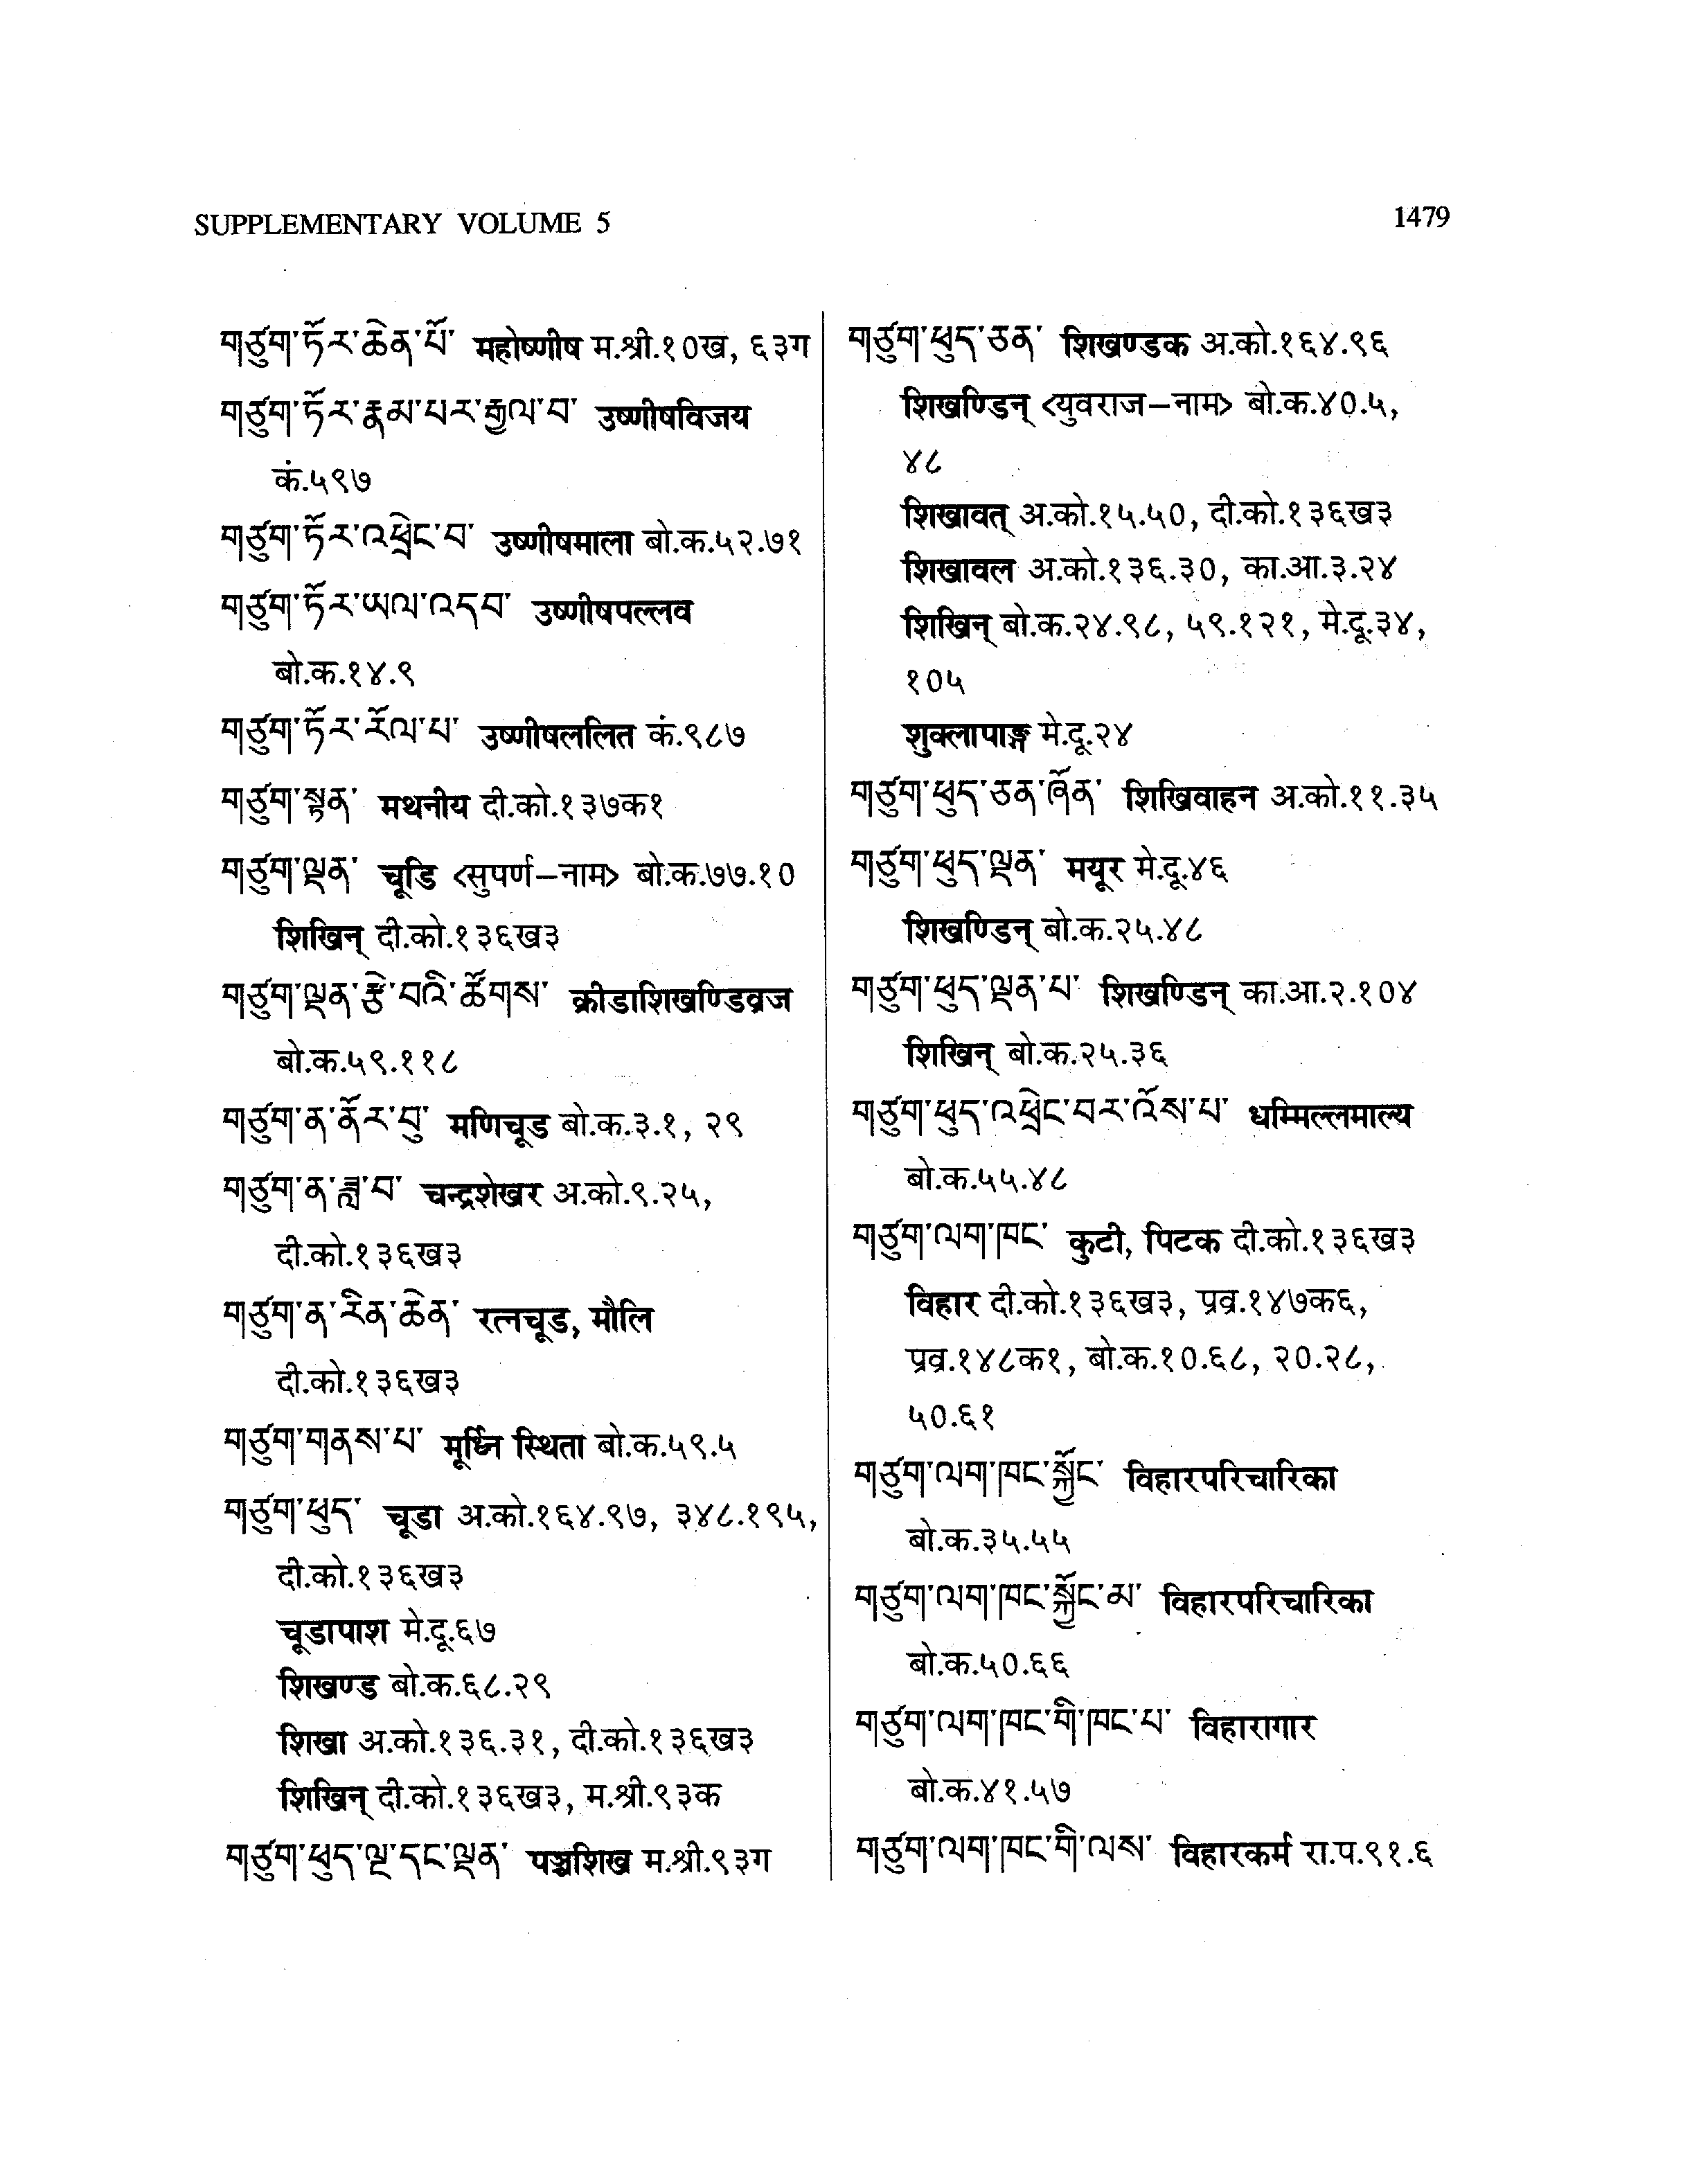 SUPPLEMENTARY VOLUME 5
1479
གཙུག་ཏོར་ཆེན་པོ་ महोष्णीष म.श्री.१०ख, ६३ग
གཙུག་ཏོར་རྣམ་པར་རྒྱལ་བ་ उष्णीषविजय
कं.५९७
གཙུག་ཏོར་འཕྲེང་བ་ उष्णीषमाला बो.क.५२.७१
གཙུག་ཏོར་ཡལ་འདབ་ उष्णीषपल्लव
बो.क.१४.९
གཙུག་ཏོར་རོལ་པ་ उष्णीषललित कं.९८७
གཙུག་སྟན་ मथनीय दी.को.१३७क१
གཙུག་ལྡན་ चूडि <सुपर्ण–नाम> बो.क.७७.१०
शिखिन् दी.को.१३६ख३
གཙུག་ལྡན་རྩེ་བའི་ཚོགས་ क्रीडाशिखण्डिव्रज
बो.क.५९.११८
གཙུག་ན་ནོར་བུ་ मणिचूड बो.क.३.१, २९
གཙུག་ན་ཟླ་བ་ चन्द्रशेखर अ.को.९.२५,
दी.को.१३६ख३
གཙུག་ན་རིན་ཆེན་ रत्नचूड, मौलि
दी.को.१३६ख३
གཙུག་གནས་པ་ मूर्ध्नि स्थिता बो.क.५९.५
གཙུག་ཕུད་ चूडा अ.को.१६४.९७, ३४८.१९५,
दी.को.१३६ख३
चूडापाश मे.दू.६७
शिखण्ड बो.क.६८.२९
शिखा अ.को.१३६.३१, दी.को.१३६ख३
शिखिन् दी.को.१३६ख३, म.श्री.९३क
གཙུག་ཕུད་ལྔ་དང་ལྡན་ पञ्चशिख म.श्री.९३ग
གཙུག་ཕུད་ཅན་ शिखण्डक अ.को.१६४.९६
शिखण्डिन् <युवराज–नाम> बो.क.४०.५,
४८
शिखावत् अ.को.१५.५०, दी.को.१३६ख३
शिखावल अ.को.१३६.३०, का.आ.३.२४
शिखिन् बो.क.२४.९८, ५९.१२१, मे.दू.३४,
१०५
शुक्लापाङ्ग मे.दू.२४
གཙུག་ཕུད་ཅན་ཞོན་ शिखिवाहन अ.को.११.३५
གཙུག་ཕུད་ལྡན་ मयूर मे.दू.४६
शिखण्डिन् बो.क.२५.४८
གཙུག་ཕུད་ལྡན་པ་ शिखण्डिन् का.आ.२.१०४
शिखिन् बो.क.२५.३६
གཙུག་ཕུད་འཕྲེང་བར་འོས་པ་ धम्मिल्लमाल्य
बो.क.५५.४८
གཙུག་ལག་ཁང་ कुटी, पिटक दी.को.१३६ख३
विहार दी.को.१३६ख३, प्रव्र.१४७क६,
प्रव्र.१४८क१, बो.क.१०.६८, २०.२८,
५०.६१
གཙུག་ལག་ཁང་སྐྱོང་ विहारपरिचारिका
बो.क.३५.५५
གཙུག་ལག་ཁང་སྐྱོང་མ་ विहारपरिचारिका
बो.क.५०.६६
གཙུག་ལག་ཁང་གི་ཁང་པ་ विहारागार
बो.क.४१.५७
གཙུག་ལག་ཁང་གི་ལས་ विहारकर्म रा.प.९१.६